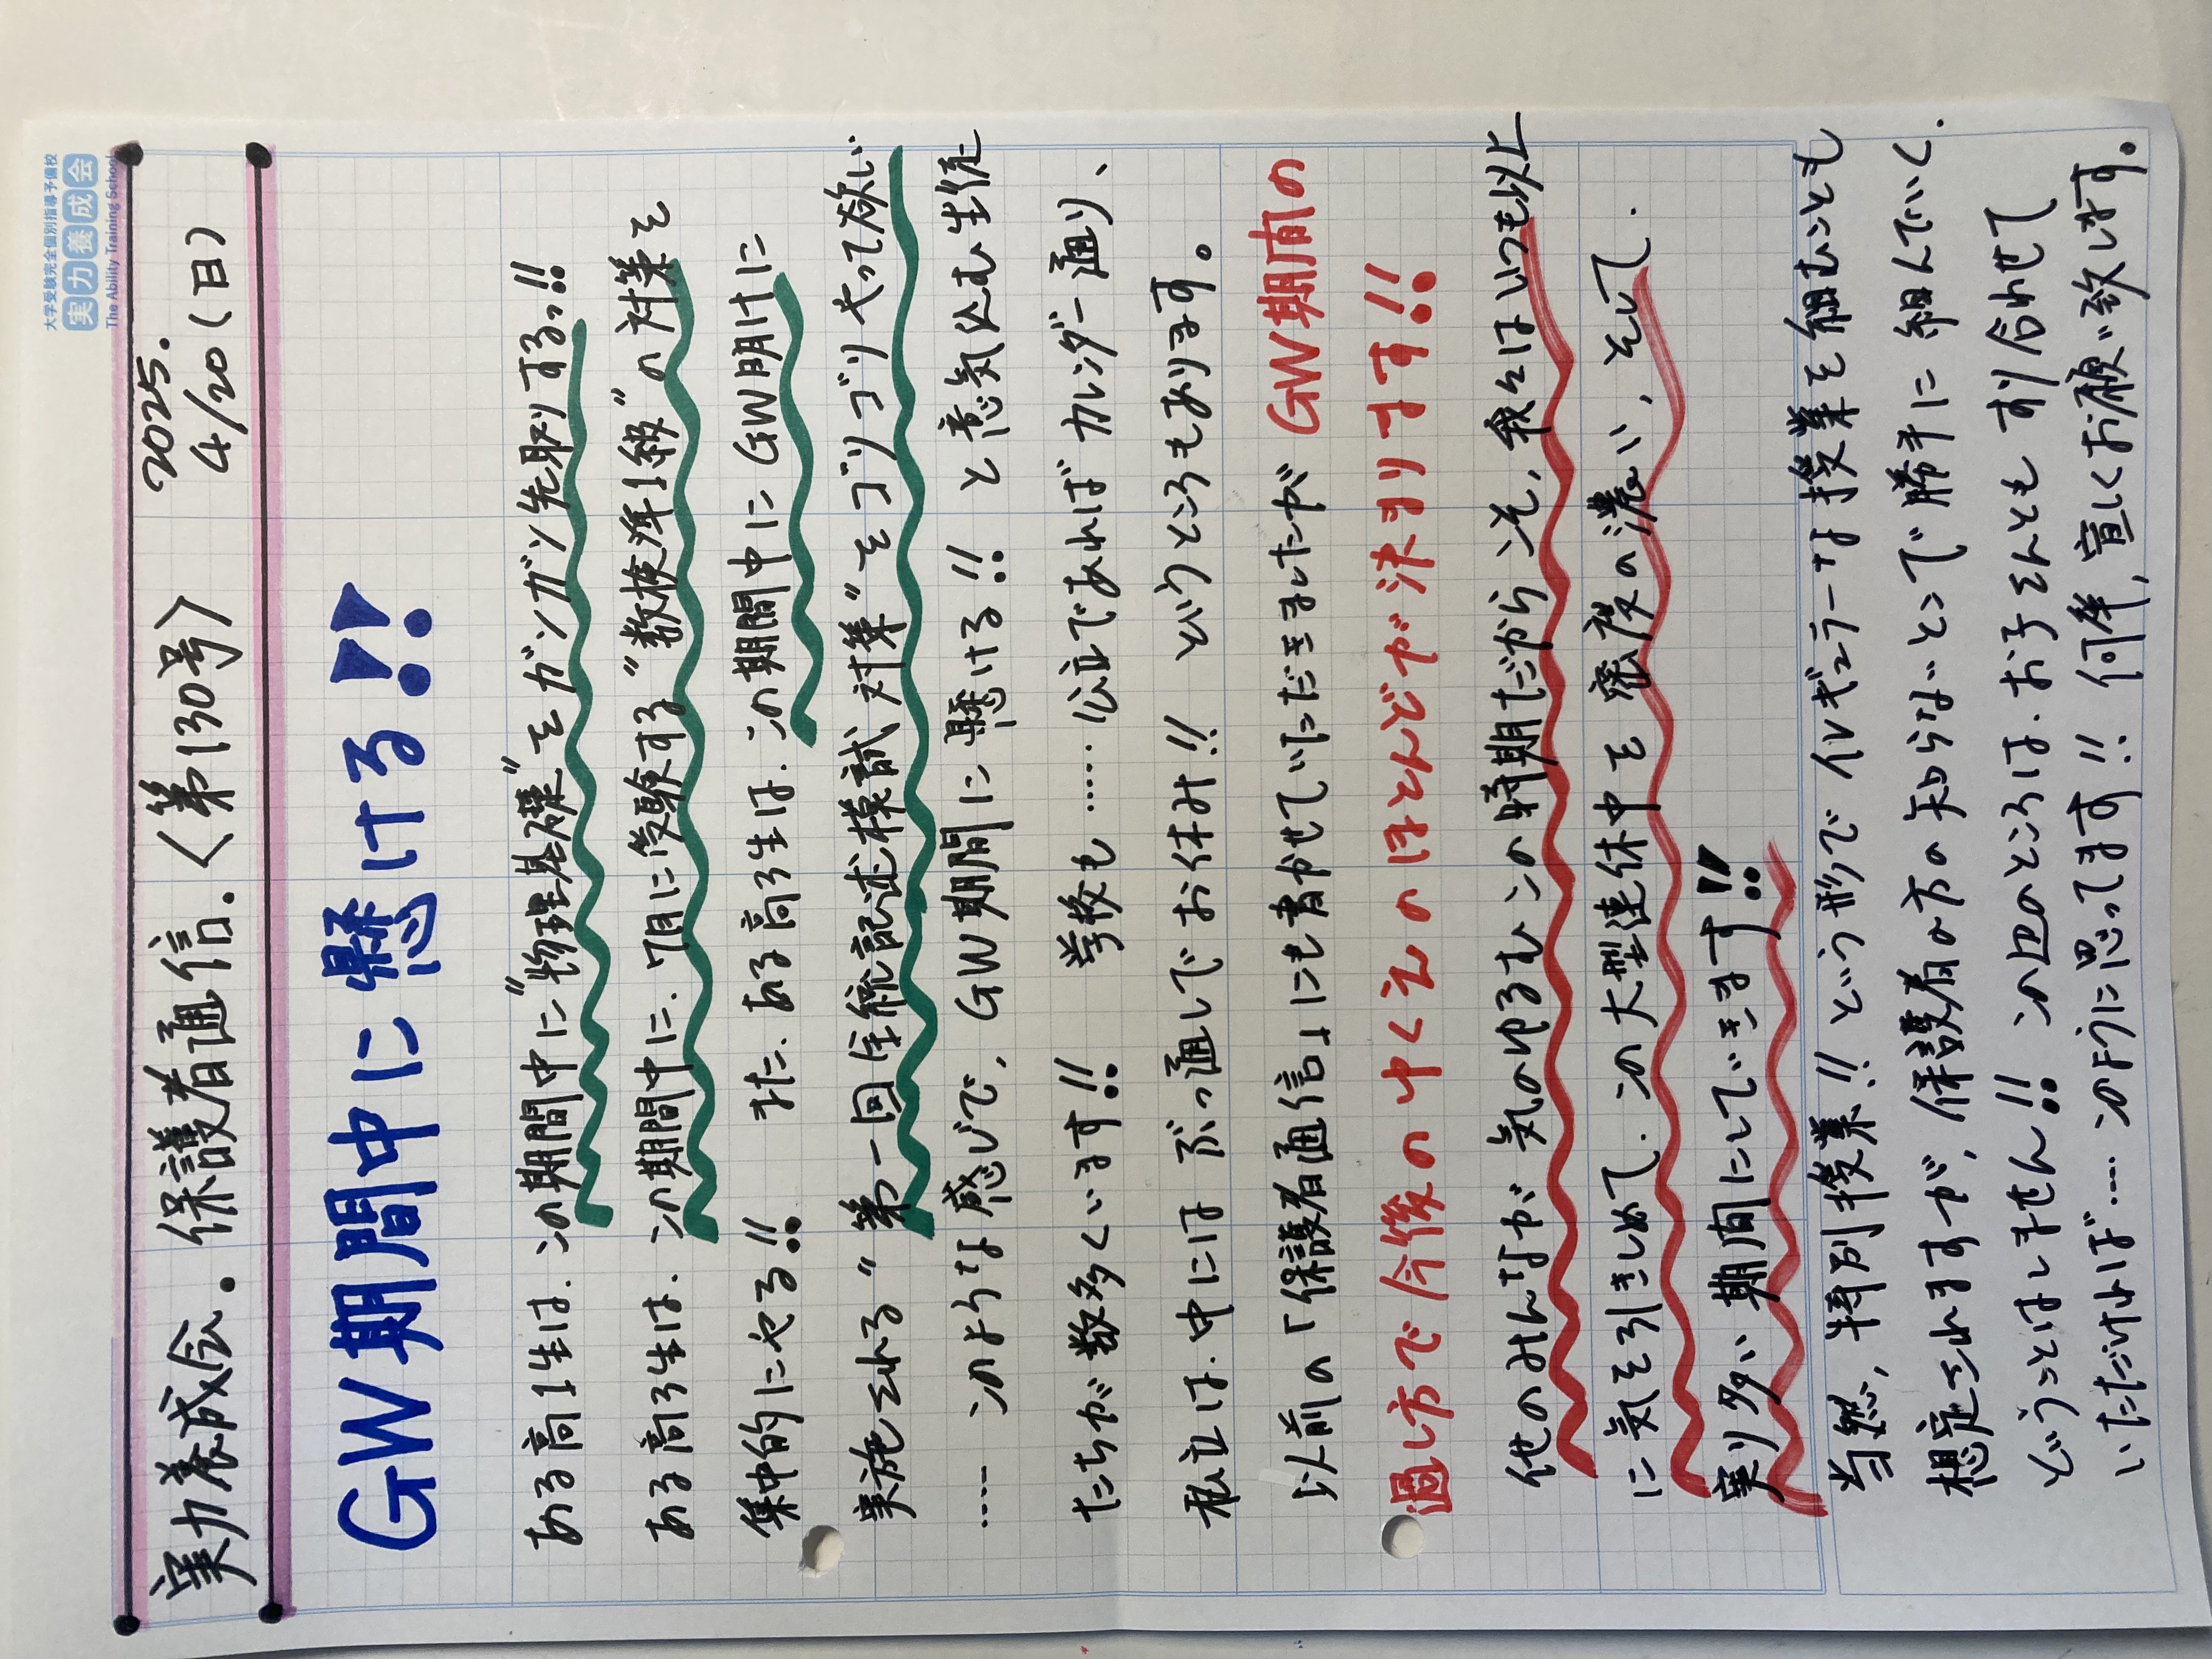 大学受験完全個別指導予備校
実力養成会
The Ability Training School
実力養成会。保護者通信.〈第130号〉 2025. 4/20(日)
GW期間中に懸ける!!
ある高1生は、この期間中に"物理基礎"をガンガン先取りする!!
ある高3生は、この期間中に、7月に受験する"数検準1級"の対策を
集中的にやる!! また、ある高3生は、この期間中にGW明けに
実施される"第一回全統記述模試対策"をゴリゴリやって欲しい
…… このような感じで、GW期間に懸ける!! と意気込む生徒
たちが数多くいます!! 学校も…… 公立であればカレンダー通り、
私立は、中にはぶっ通しでお休み!! というところもあります。
以前の「保護者通信」にも書かせていただきましたがGW期間の
過し方で今後の中くえのほとんどが決まります!!
他のみんなが気のゆるむこの時期だからこそ、我々はいつも以上
に気を引きしめて、この大型連休中を密度の濃い、そして、
実り多い期間にしていきます!!
当然、特別授業!! という形でイレギュラーな授業を組むことも
想定されますが、保護者の方の知らないところで勝手に組んでいく、
ということはしません!! この辺のところは、お子さんともすり合わせて
いただければ…… このように思ってます!! 何卒、宜しくお願い致します。